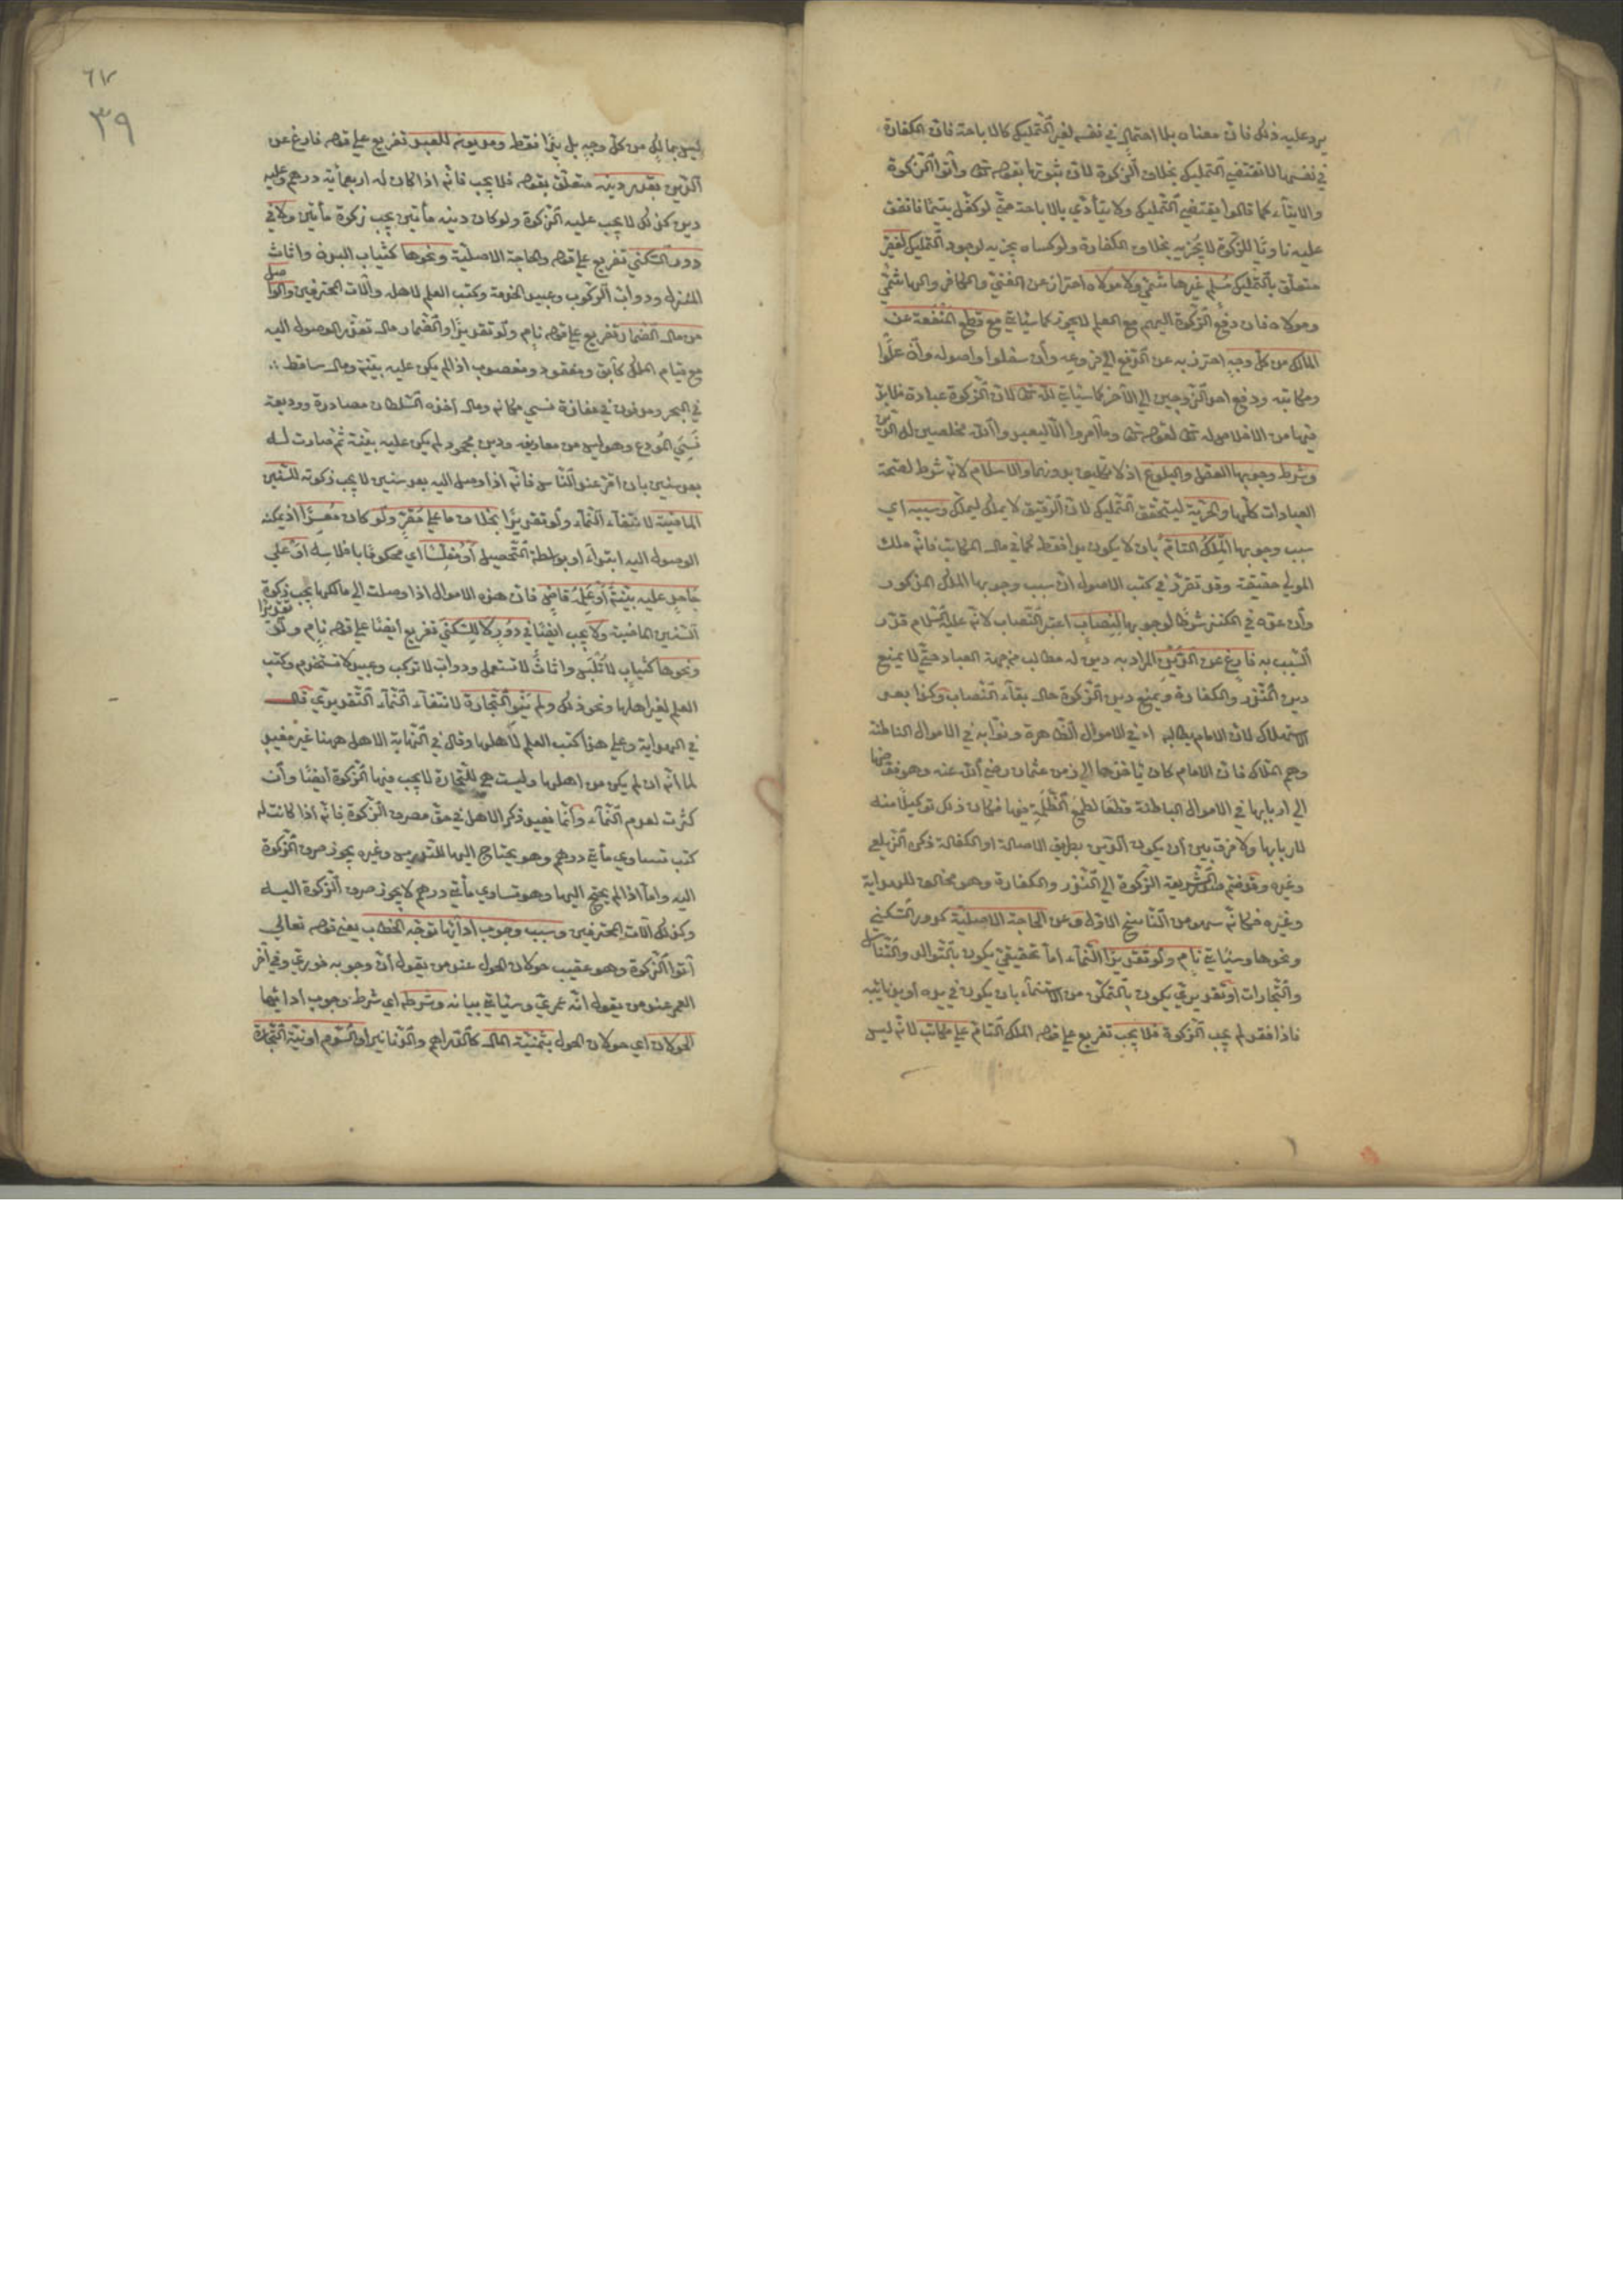 يرد عليه ذلك فان معناه بلا احتمال في نفسه لغير التمليك كالاباحة فان الكفارة
في نفسها لا تقتضي التمليك بخلاف الزكوة لان ثبوتها بقوله تعالى وآتوا الزكوة
والايتاء كما قالوا يقتضي التمليك ولا يتأدي بالاباحة حتي لو كفل يتيما فانفق
عليه ناويا للزكوة لا يجزيه بخلاف الكفارة ولو كساه يجزيه لوجود التمليك لفقير
متعلق بالتمليك مسلم غير هاشمي ولا مولاه احتراز عن الغني والكافر والهاشمي
ومولاه فان دفع الزكوة اليهم مع العلم لا يجوز كما سياتي مع قطع المنفعة عن
المالك من كل وجه احترز به عن الدفع الي فروعه وان سفلوا واصوله وان علوا
ومكاتبه ودفع احد الزوجين الي الآخر كما سياتي لله تعالى لان الزكوة عبادة فلا بد
فيها من الاخلاص لله تعالى لقوله تعالى وما امروا الا ليعبدوا الله مخلصين له الدين
وشرط وجوبها العقل والبلوغ اذ لا تكليف بدونهما والاسلام لانه شرط لصحة
العبادات كلها والحرية ليتحقق التمليك لان الرقيق لا يملك ليملك وسببه اي
سبب وجوبها الملك التام بان لا يكون يدا فقط كما في مال المكاتب فانه ملك
المولي حقيقة وقد تقرر في كتب الاصول ان سبب وجوبها الملك المذكور
وان عده في الكنز شرطا لوجوبها لنصاب اعتبر النصاب لانه عليه السلام قدر
السبب به فارغ عن الدين المراد به دين له مطالب من جهة العباد حتي لا يمنع
دين النذر والكفارة ويمنع دين الزكوة حال بقاء النصاب وكذا بعد
الاستهلاك لان الامام يطالبه اذ في الاموال الظاهرة ونوابه في الاموال الباطنة
وهم الملاك فان الامام كان ياخذها الي زمن عثمان رضي الله عنه وهو فوضها
الي اربابها في الاموال الباطنة قطعا لطمع الظلمة فيها فكان ذلك توكيلا منه
لاربابها ولا فرق بين ان يكون الدين بطريق الاصالة او الكفالة ذكره الزيلعي
وغيره وقد ضم صدر الشريعة الزكوة الي النذر والكفارة وهو مخالف للهداية
وغيره فكانه سهو من الناسخ الاول وعن الحاجة الاصلية كدور السكني
ونحوها وسياتي نام ولو تقديرا النماء اما تحقيقي يكون بالتوالد والتناسل
والتجارات او تقديري يكون بالتمكن من الاستنماء بان يكون في يده او يد نائبه
فاذا فقد لم يجب الزكوة فلا يجب تفريع علي قوله الملك التام علي مكاتب لانه ليس
٦٧
٣٩
ليس بمالك من كل وجه بل يدا فقط ومديون للعبد تفريع علي قوله فارغ عن
الدين بقدر دينه متعلق بقوله فلا يجب فانه اذا كان له اربعمائة درهم وعليه
دين كذلك لا يجب عليه الزكوة ولو كان دينه مأتين يجب زكوة مأتين ولا في
دور السكني تفريع علي قوله والحاجة الاصلية ونحوها كثياب البدن واثاث
المنزل ودواب الركوب وعبيد الخدمة وكتب العلم لاهله وآلات المحترفين والواصل
من مال الضمار تفريع علي قوله نام ولو تقديرا والضمار مال تعذر الوصول اليه
مع قيام الملك كآبق ومفقود ومغصوب اذا لم يكن عليه بينة ومال ساقط
في البحر ومدفون في مفازة نسي مكانه ومال اخذه السلطان مصادرة ووديعة
نسي المودع وهو ليس من معارفه ودين مجحود لم يكن عليه بينة ثم صارت له
بعد سنين بان اقر عند الناس فانه اذا وصل اليه بعد سنين لا يجب زكوته للسنين
الماضية لانتفاء النماء ولو تقديرا بخلاف ما علي مقر ولو كان معسرا اذ يمكنه
الوصول اليه ابتداء او بواسطة التحصيل او مفلسا اي محكوما بافلاسه او علي
جاحد عليه بينة او علمه قاض فان هذه الاموال اذا وصلت الي مالكها يجب زكوة
السنين الماضية ولا يجب ايضا في دور لا للسكني تفريع ايضا علي قوله نام ولو تقديرا
ونحوها كثياب لا تلبس واثاث لا تستعمل ودواب لا تركب وعبيد لا تستخدم وكتب
العلم لغير اهلها ونحو ذلك ولم ينو التجارة لانتفاء النماء التقديري قال
في الهداية وعلي هذا كتب العلم لاهلها وقال في النهاية الاهل ههنا غير مفيد
لما انه ان لم يكن من اهلها وليست هي للتجارة لا يجب فيها الزكوة ايضا وان
كثرت لعدم النماء وانما يفيد ذكر الاهل في حق مصرف الزكوة فانه اذا كانت له
كتب تساوي مأتي درهم وهو يحتاج اليها للتدريس وغيره يجوز صرف الزكوة
اليه واما اذا لم يحتج اليها وهو تساوي مأتي درهم لا يجوز صرف الزكوة اليه
وكذلك آلات المحترفين وسبب وجوب ادائها توجه الخطاب يعني قوله تعالي
آتوا الزكوة وهو عقيب حولان الحول عند من يقول ان وجوبه فوري وفي آخر
العمر عند من يقول انه عمري وسياتي بيانه وشرطه اي شرط وجوب ادائها
الحولان اي حولان الحول بثمنية المال كالدراهم والدنانير او السوم او نية التجارة